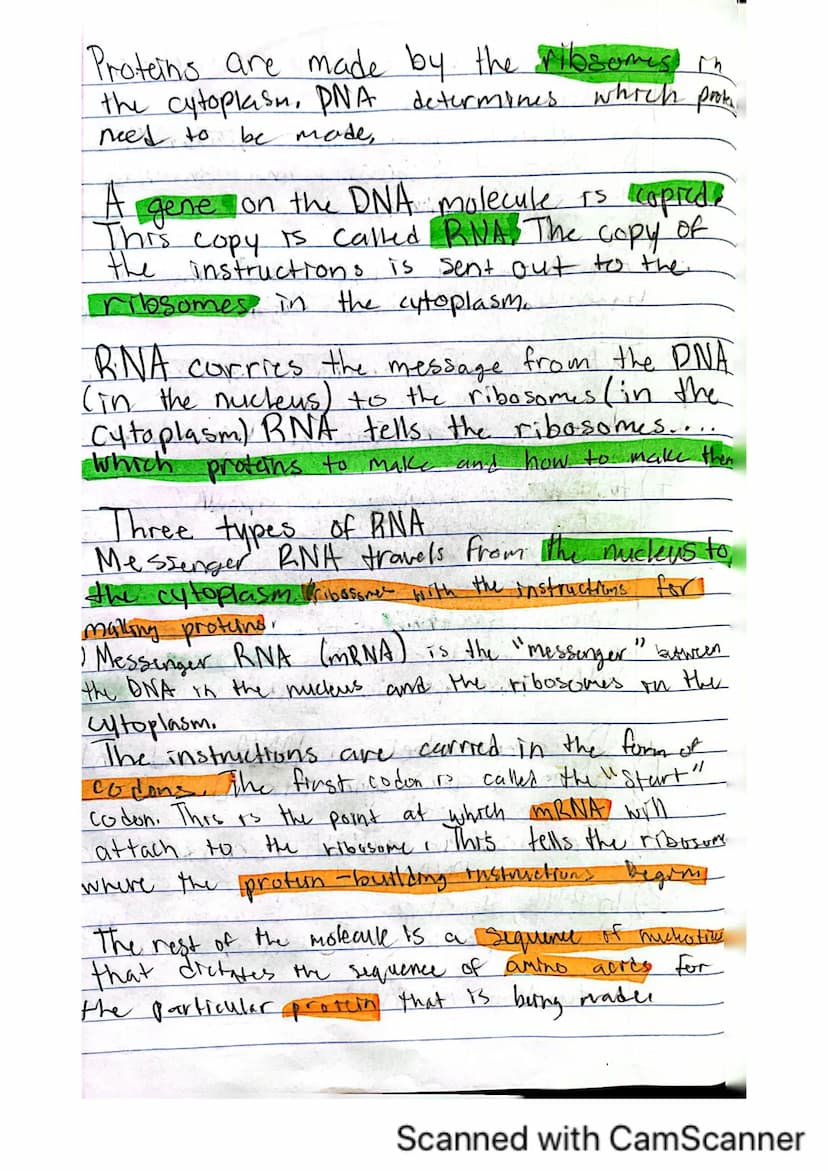 Proteins are made by the ribsomes in
the cytoplasm. DNA determines which
need to be made.
A gene on the DNA molecule is copied.
This copy is called RNA. The copy of
the instructions is sent out to the
ribsomes in the cytoplasm.
RNA carries the message from the DNA
(in the nucleus) to the ribosomes (in the
cytoplasm) RNA tells the ribosomes....
which proteins to make and how to make them
Three types of RNA
Messenger RNA travels from the nucleus to
the cytoplasm with the instructions for
making proteins.
Messenger RNA (mRNA) is the "messenger" between
the DNA in the nucleus and the ribosomes in the
cytoplasm.
The instructions are carried in the form of
codons. The first codon is called the "Start"
codon. This is the point at which mRNA will
attach to the ribosome. This tells the ribosome
where the protein-building instructions begin
The rest of the molecule is a sequence of
that dictates the sequence of amino acids for
the particular protein that is being made.
Scanned with CamScanner